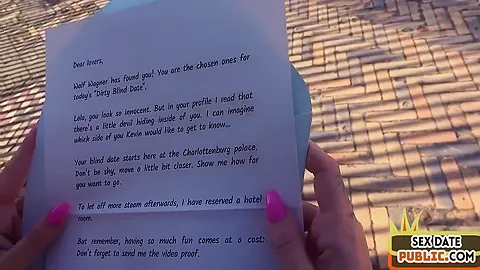 Dear lovers,
Wolf Wagner has found you! You are the chosen ones for
today's "Dirty Blind Date".
Lola, you look so innocent. But in your profile I read that
there's a little devil hiding inside of you. I can imagine
which side of you Kevin would like to get to know...
Your blind date starts here at the Charlottenburg palace.
Don't be shy, move a little bit closer. Show me how far
you want to go.
To let off more steam afterwards, I have reserved a hotel
room.
But remember, having so much fun comes at a cost:
Don't forget to send me the video proof.
SEX DATE
PUBLIC.COM